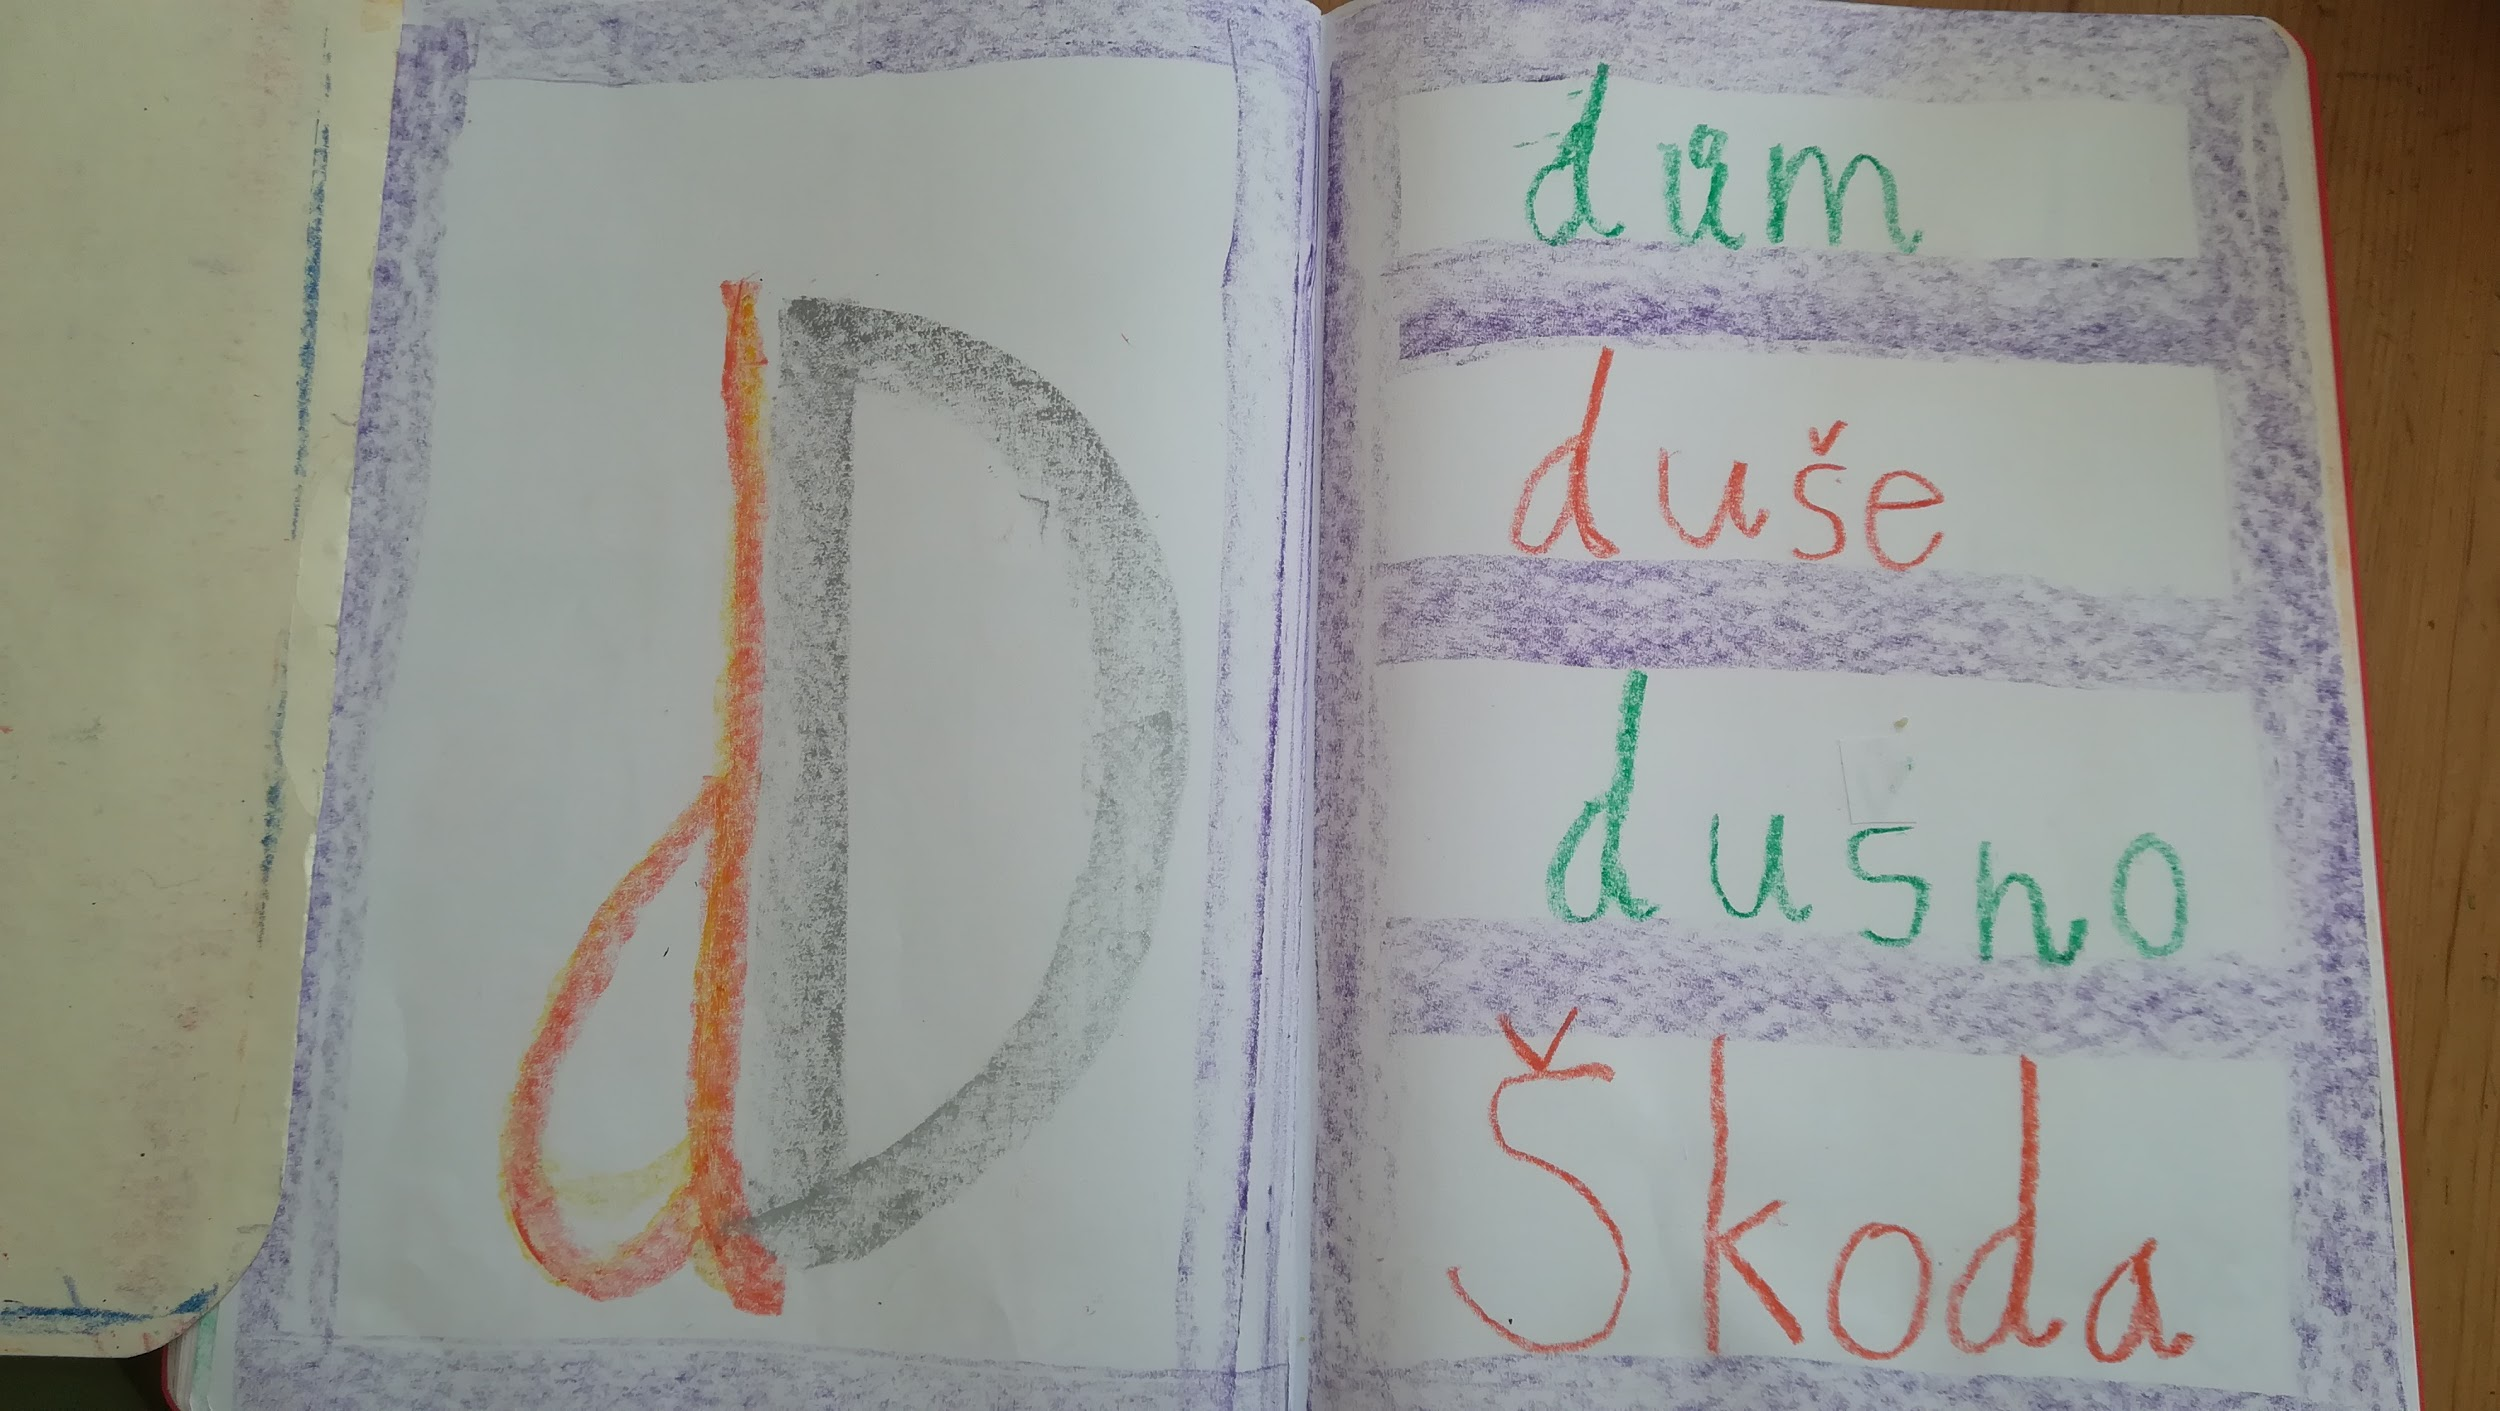 dD
dům
duše
dusno
Škoda